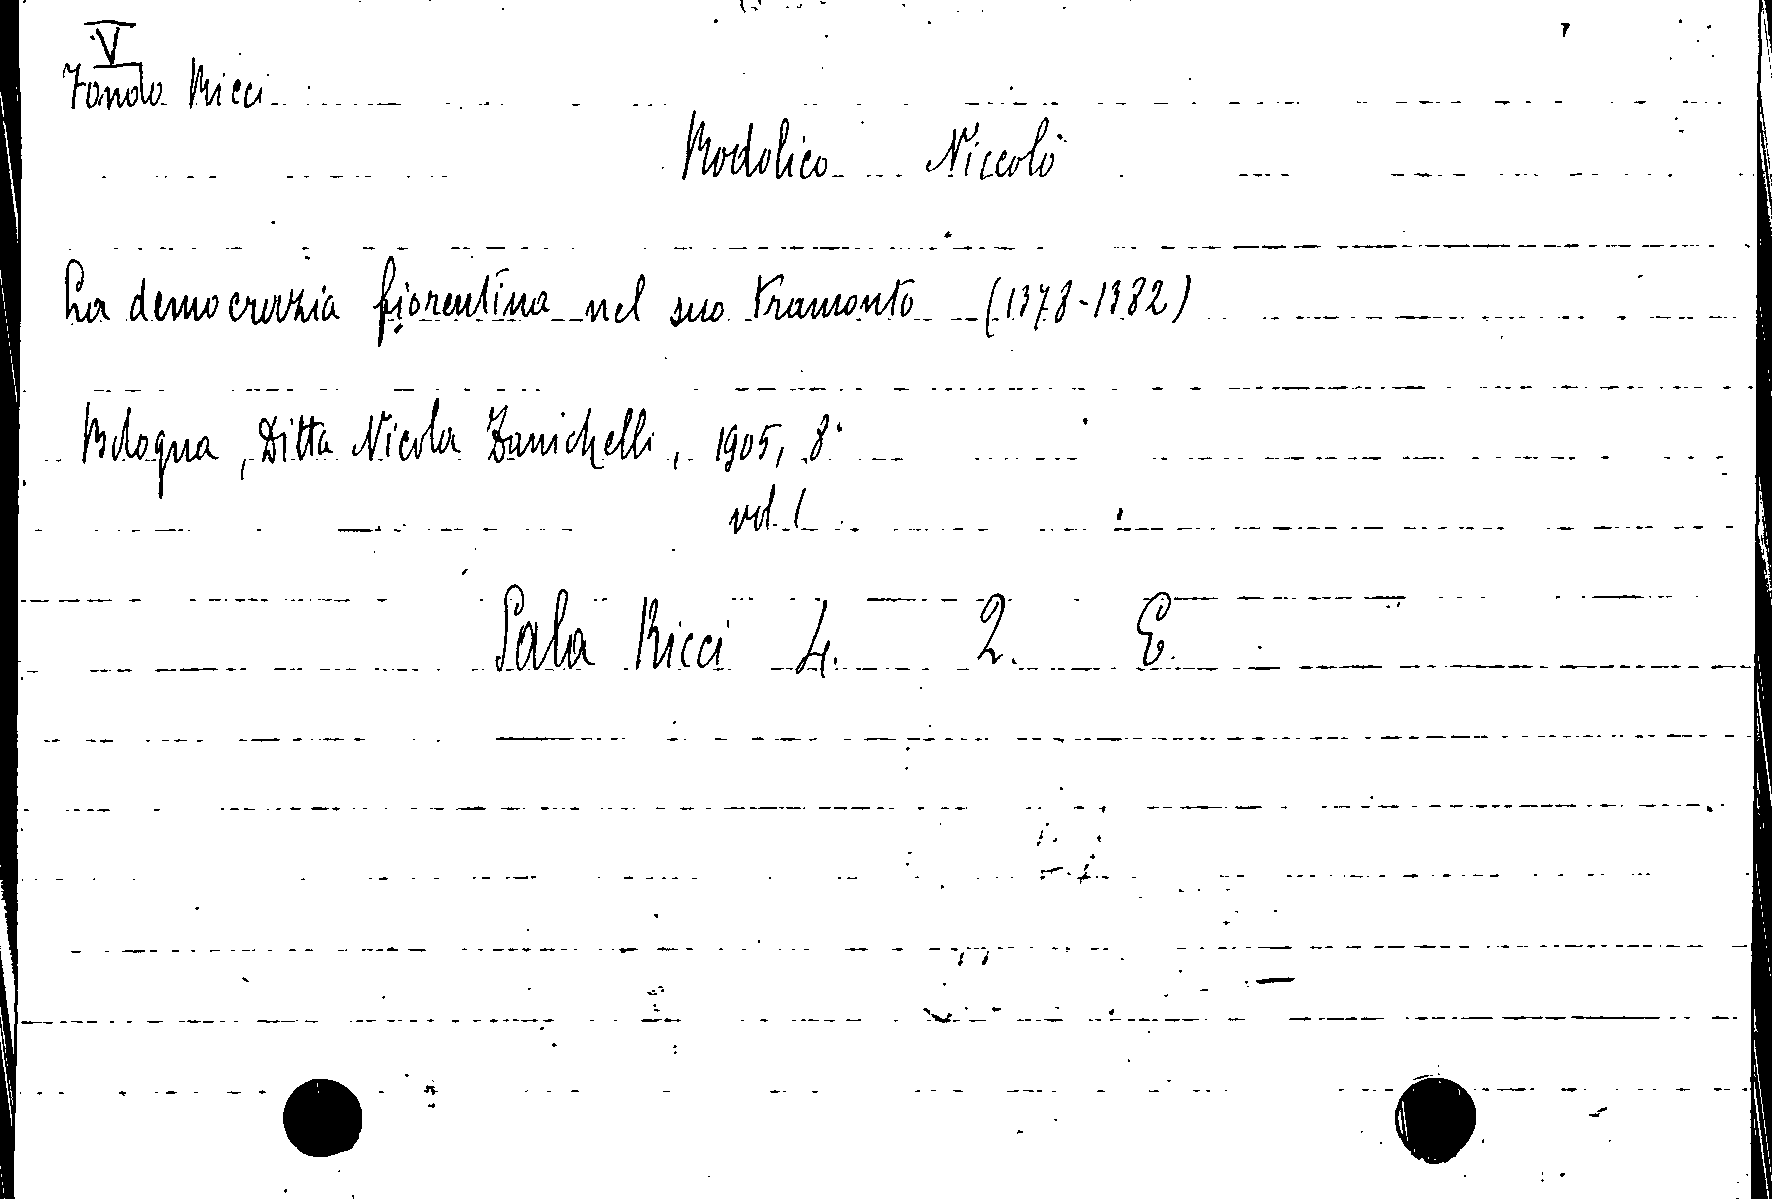 V
Fondo Ricci
Rodolico Niccolò
La democrazia fiorentina nel suo tramonto (1378-1382)
Bologna, Ditta Nicola Zanichelli, 1905, 8°
vol. 1
Sala Ricci 4. 2. E.